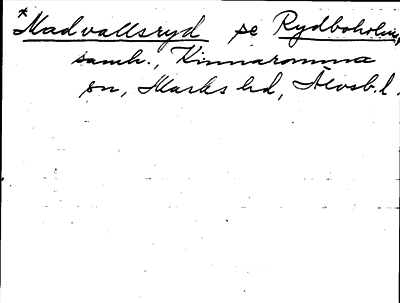 *Madvallsryd se Rydboholm,
samh., Kinnaromma
sn, Marks hd, Älvsb. l.